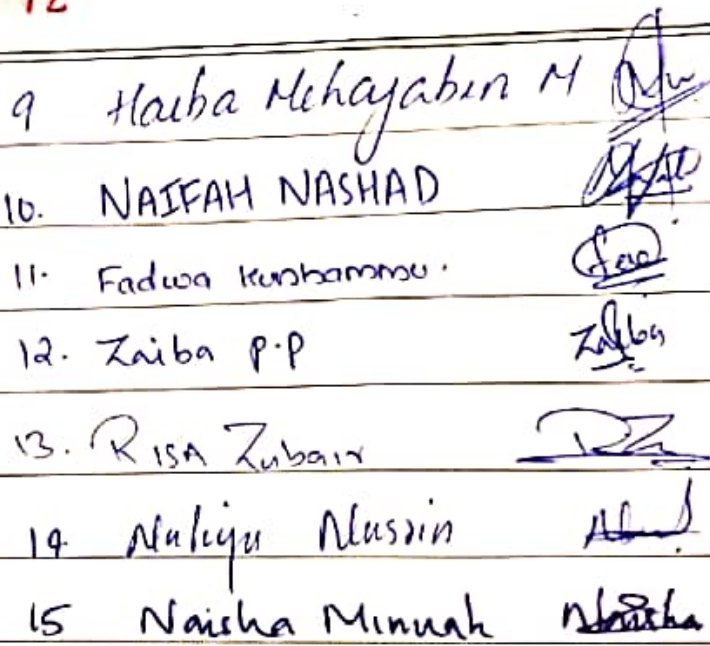 12
9 Haiba Mehajabin M
10. NAIFAH NASHAD
11. Fadwa kunhammu.
12. Zaiba P.P Zaiba
13. RISA Zubair RZ
14 Nasrin
15 Naisha Minnah Naisha